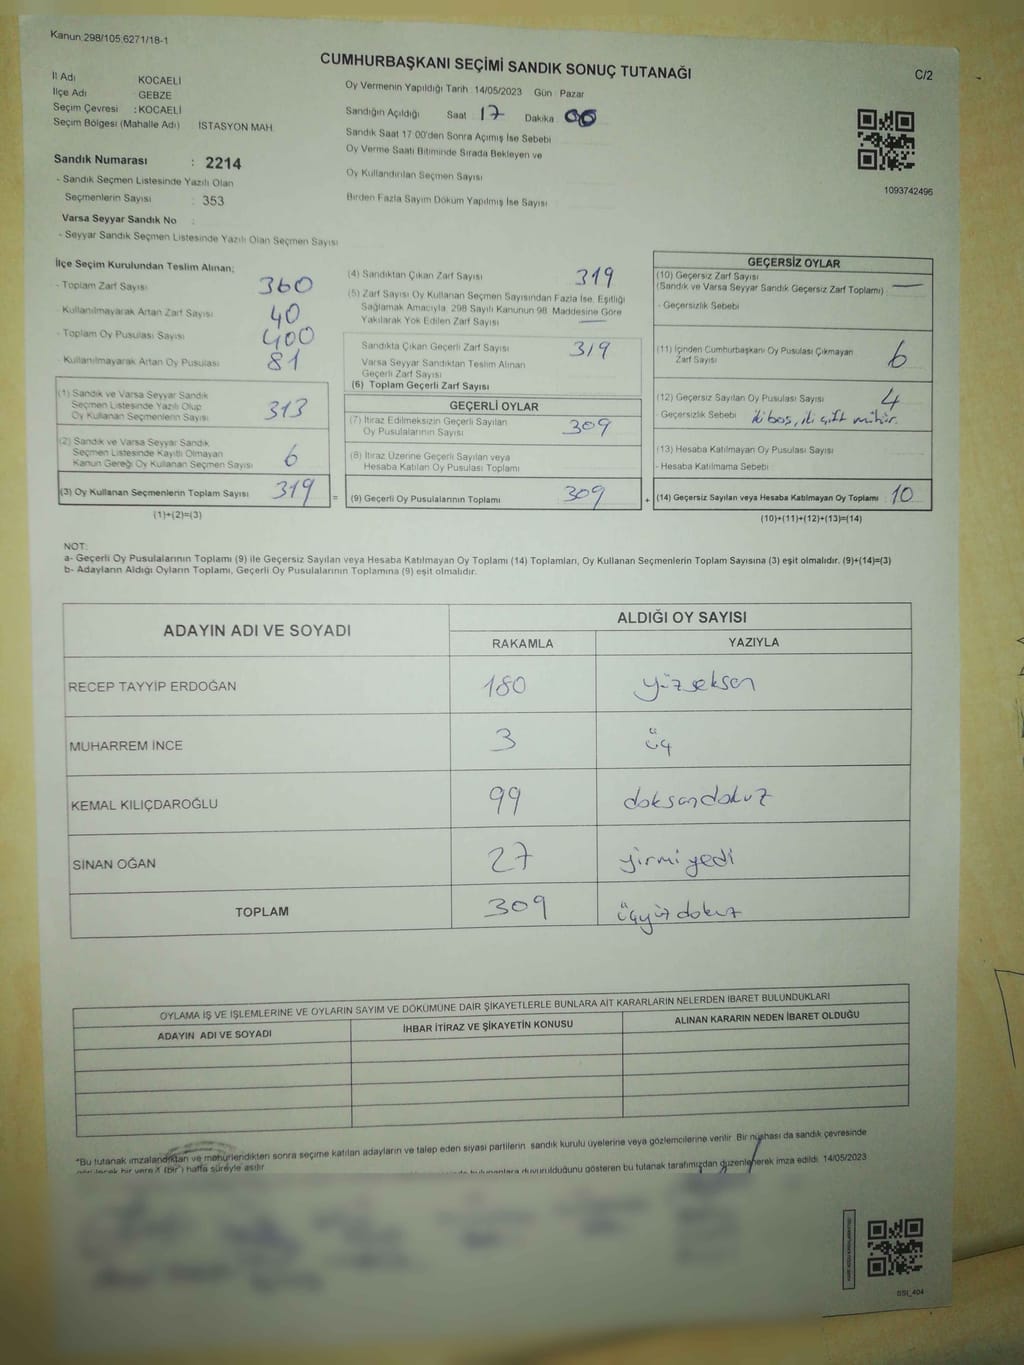 Kanun:298/105;6271/18-1
CUMHURBAŞKANI SEÇİMİ SANDIK SONUÇ TUTANAĞI
C/2
İl Adı KOCAELİ
İlçe Adı GEBZE
Seçim Çevresi : KOCAELİ
Seçim Bölgesi (Mahalle Adı) İSTASYON MAH.
Oy Vermenin Yapıldığı Tarih : 14/05/2023 Gün : Pazar
Sandığın Açıldığı Saat 17 Dakika 00
Sandık Saat 17:00'den Sonra Açımış İse Sebebi
Oy Verme Saati Bitiminde Sırada Bekleyen ve
Oy Kullandırılan Seçmen Sayısı
Birden Fazla Sayım Döküm Yapılmış İse Sayısı
1093742496
Sandık Numarası : 2214
- Sandık Seçmen Listesinde Yazılı Olan
Seçmenlerin Sayısı : 353
Varsa Seyyar Sandık No :
- Seyyar Sandık Seçmen Listesinde Yazılı Olan Seçmen Sayısı
İlçe Seçim Kurulundan Teslim Alınan;
- Toplam Zarf Sayısı 360
- Kullanılmayarak Artan Zarf Sayısı 40
- Toplam Oy Pusulası Sayısı 400
- Kullanılmayarak Artan Oy Pusulası 81
(1) Sandık ve Varsa Seyyar Sandık
Seçmen Listesinde Yazılı Olup
Oy Kullanan Seçmenlerin Sayısı 313
(2) Sandık ve Varsa Seyyar Sandık
Seçmen Listesinde Kayıtlı Olmayan
Kanun Gereği Oy Kullanan Seçmen Sayısı 6
(3) Oy Kullanan Seçmenlerin Toplam Sayısı 319
(1)+(2)=(3)
(4) Sandıktan Çıkan Zarf Sayısı 319
(5) Zarf Sayısı Oy Kullanan Seçmen Sayısından Fazla İse, Eşitliği
Sağlamak Amacıyla, 298 Sayılı Kanunun 98. Maddesine Göre
Yakılarak Yok Edilen Zarf Sayısı —
Sandıkta Çıkan Geçerli Zarf Sayısı 319
Varsa Seyyar Sandıktan Teslim Alınan
Geçerli Zarf Sayısı
(6) Toplam Geçerli Zarf Sayısı
GEÇERLİ OYLAR
(7) İtiraz Edilmeksizin Geçerli Sayılan
Oy Pusulalarının Sayısı 309
(8) İtiraz Üzerine Geçerli Sayılan veya
Hesaba Katılan Oy Pusulası Toplamı
= (9) Geçerli Oy Pusulalarının Toplamı 309
GEÇERSİZ OYLAR
(10) Geçersiz Zarf Sayısı
(Sandık ve Varsa Seyyar Sandık Geçersiz Zarf Toplamı) —
- Geçersizlik Sebebi
(11) İçinden Cumhurbaşkanı Oy Pusulası Çıkmayan
Zarf Sayısı 6
(12) Geçersiz Sayılan Oy Pusulası Sayısı 4
- Geçersizlik Sebebi iki boş, iki çift mühür.
(13) Hesaba Katılmayan Oy Pusulası Sayısı
- Hesaba Katılmama Sebebi
+ (14) Geçersiz Sayılan veya Hesaba Katılmayan Oy Toplamı 10
(10)+(11)+(12)+(13)=(14)
NOT:
a- Geçerli Oy Pusulalarının Toplamı (9) ile Geçersiz Sayılan veya Hesaba Katılmayan Oy Toplamı (14) Toplamları, Oy Kullanan Seçmenlerin Toplam Sayısına (3) eşit olmalıdır. (9)+(14)=(3)
b- Adayların Aldığı Oyların Toplamı, Geçerli Oy Pusulalarının Toplamına (9) eşit olmalıdır.
ADAYIN ADI VE SOYADI
ALDIĞI OY SAYISI
RAKAMLA YAZIYLA
RECEP TAYYİP ERDOĞAN 180 yüzseksen
MUHARREM İNCE 3 üç
KEMAL KILIÇDAROĞLU 99 doksandokuz
SİNAN OĞAN 27 yirmiyedi
TOPLAM 309 üçyüzdokuz
OYLAMA İŞ VE İŞLEMLERİNE VE OYLARIN SAYIM VE DÖKÜMÜNE DAİR ŞİKAYETLERLE BUNLARA AİT KARARLARIN NELERDEN İBARET BULUNDUKLARI
ADAYIN ADI VE SOYADI İHBAR İTİRAZ VE ŞİKAYETİN KONUSU ALINAN KARARIN NEDEN İBARET OLDUĞU
*Bu tutanak imzalandıktan ve mühürlendikten sonra seçime katılan adayların ve talep eden siyasi partilerin, sandık kurulu üyelerine veya gözlemcilerine verilir. Bir nüshası da sandık çevresinde
bir yere X (bir) hafta süreyle asılır. duyurulduğunu gösteren bu tutanak tarafımızdan düzenlenerek imza edildi. 14/05/2023
SSI_404